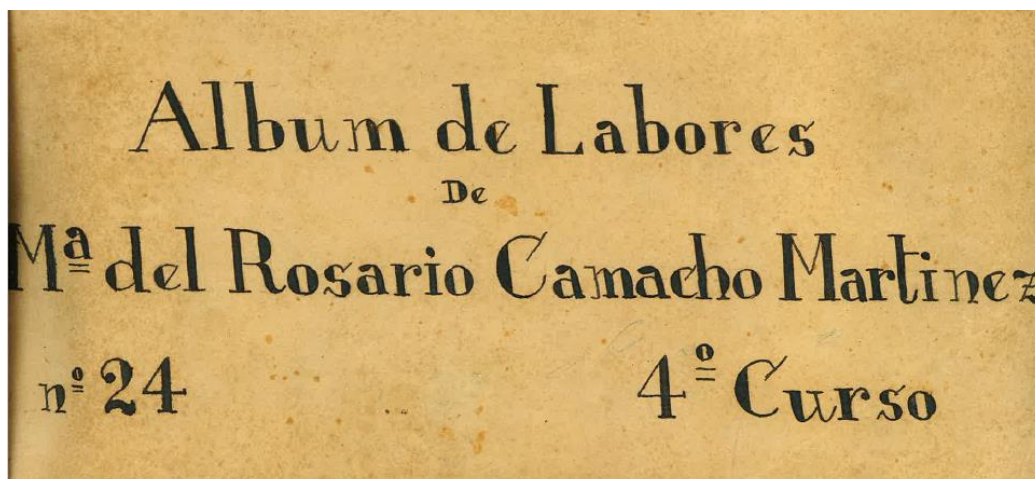 Album de Labores
De
Mª del Rosario Camacho Martinez
nº 24 4º Curso